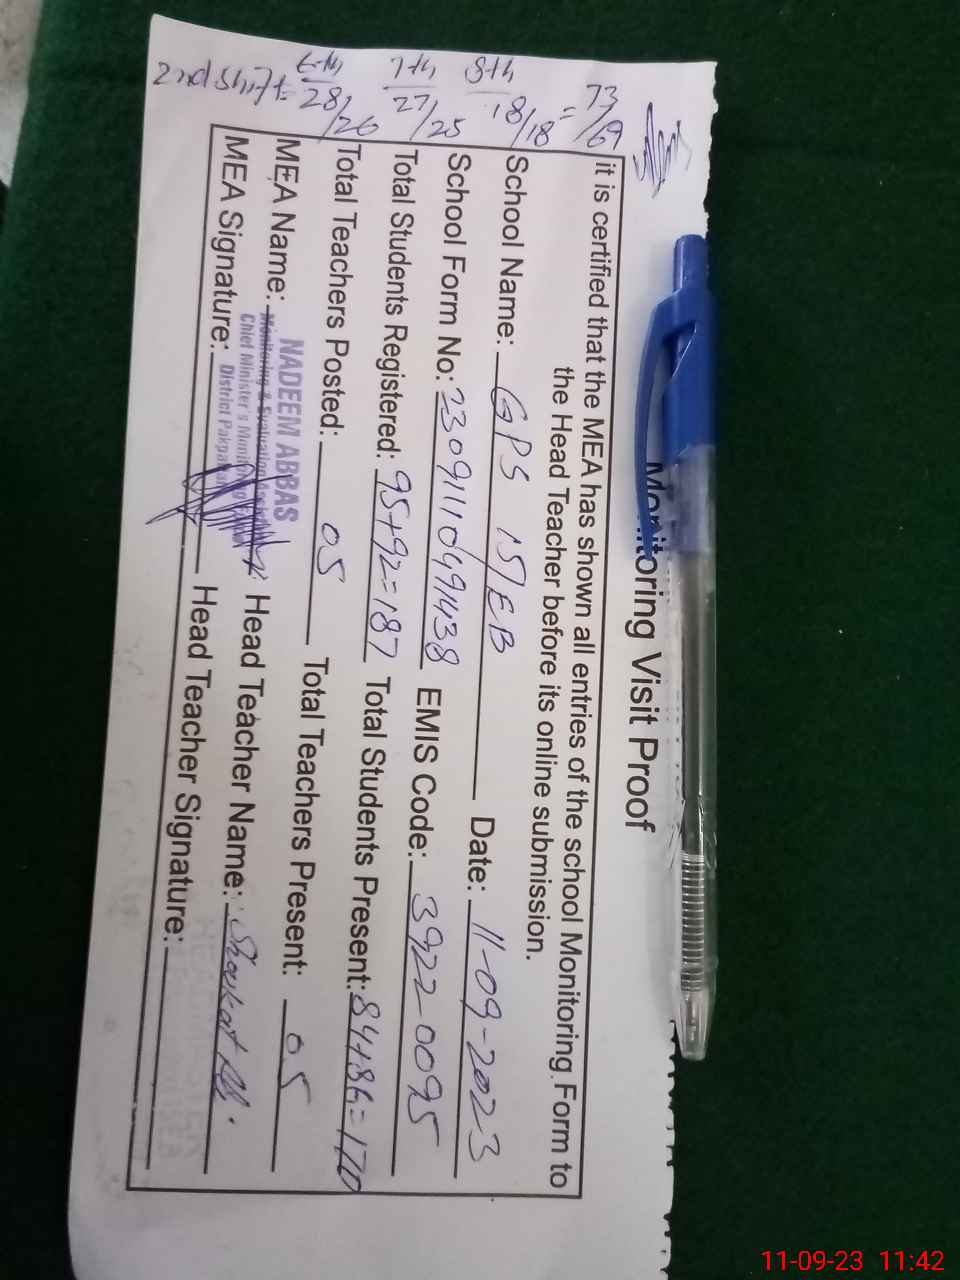 2nd shift= 6th 28/26 7th 27/25 8th 18/18 = 73/69
Monitoring Visit Proof
it is certified that the MEA has shown all entries of the school Monitoring Form to
the Head Teacher before its online submission.
School Name: GPS 15/EB Date: 11-09-2023
School Form No: EMIS Code: 39220095
Total Students Registered: 95+92=187 Total Students Present: 84+86=170
Total Teachers Posted: 05 Total Teachers Present: 05
MEA Name: NADEEM ABBAS Head Teacher Name: Shoukat Ali.
Monitoring & Evaluation
Chief Minister's Monitoring
District
MEA Signature: Head Teacher Signature:
11-09-23 11:42